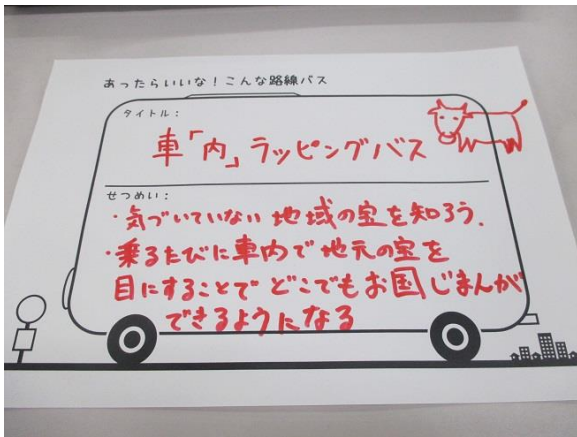 あったらいいな！こんな路線バス
タイトル：
車「内」ラッピングバス
せつめい：
・気づいていない地域の宝を知ろう.
・乗るたびに車内で地元の宝を
目にすることでどこでもお国じまんが
できるようになる